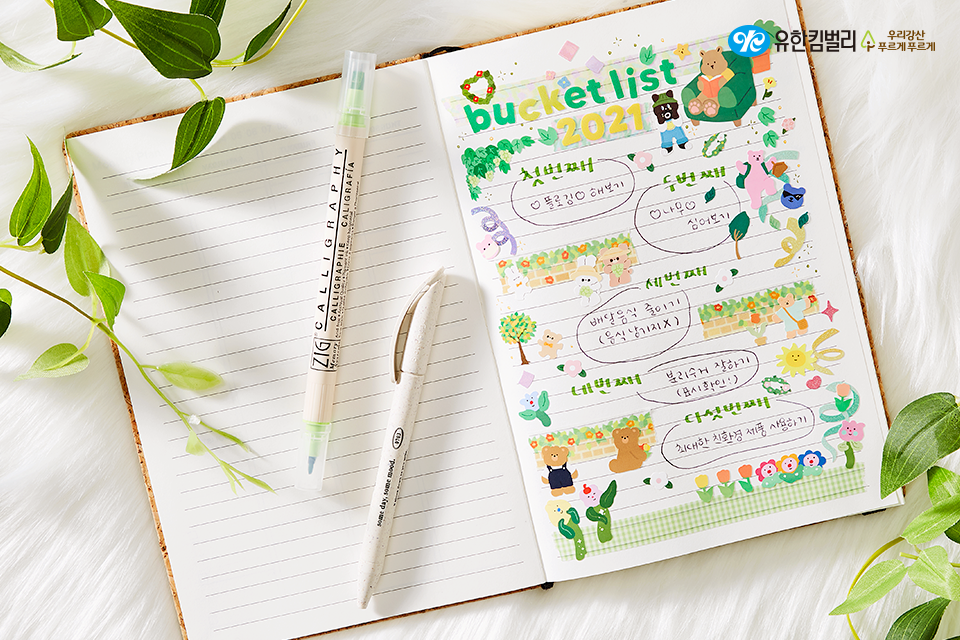 유한킴벌리
우리강산
푸르게 푸르게
bucket list
2021
첫번째
♡플로깅♡ 해보기
두번째
♡나무♡
심어보기
세번째
배달음식 줄이기
(음식 남기지X)
네번째
분리수거 잘하기
(표시확인:)
다섯번째
최대한 친환경 제품 사용하기
ZIG
CALLIGRAPHY
CALLIGRAPHIE CALIGRAFÍA
some day, some mood.